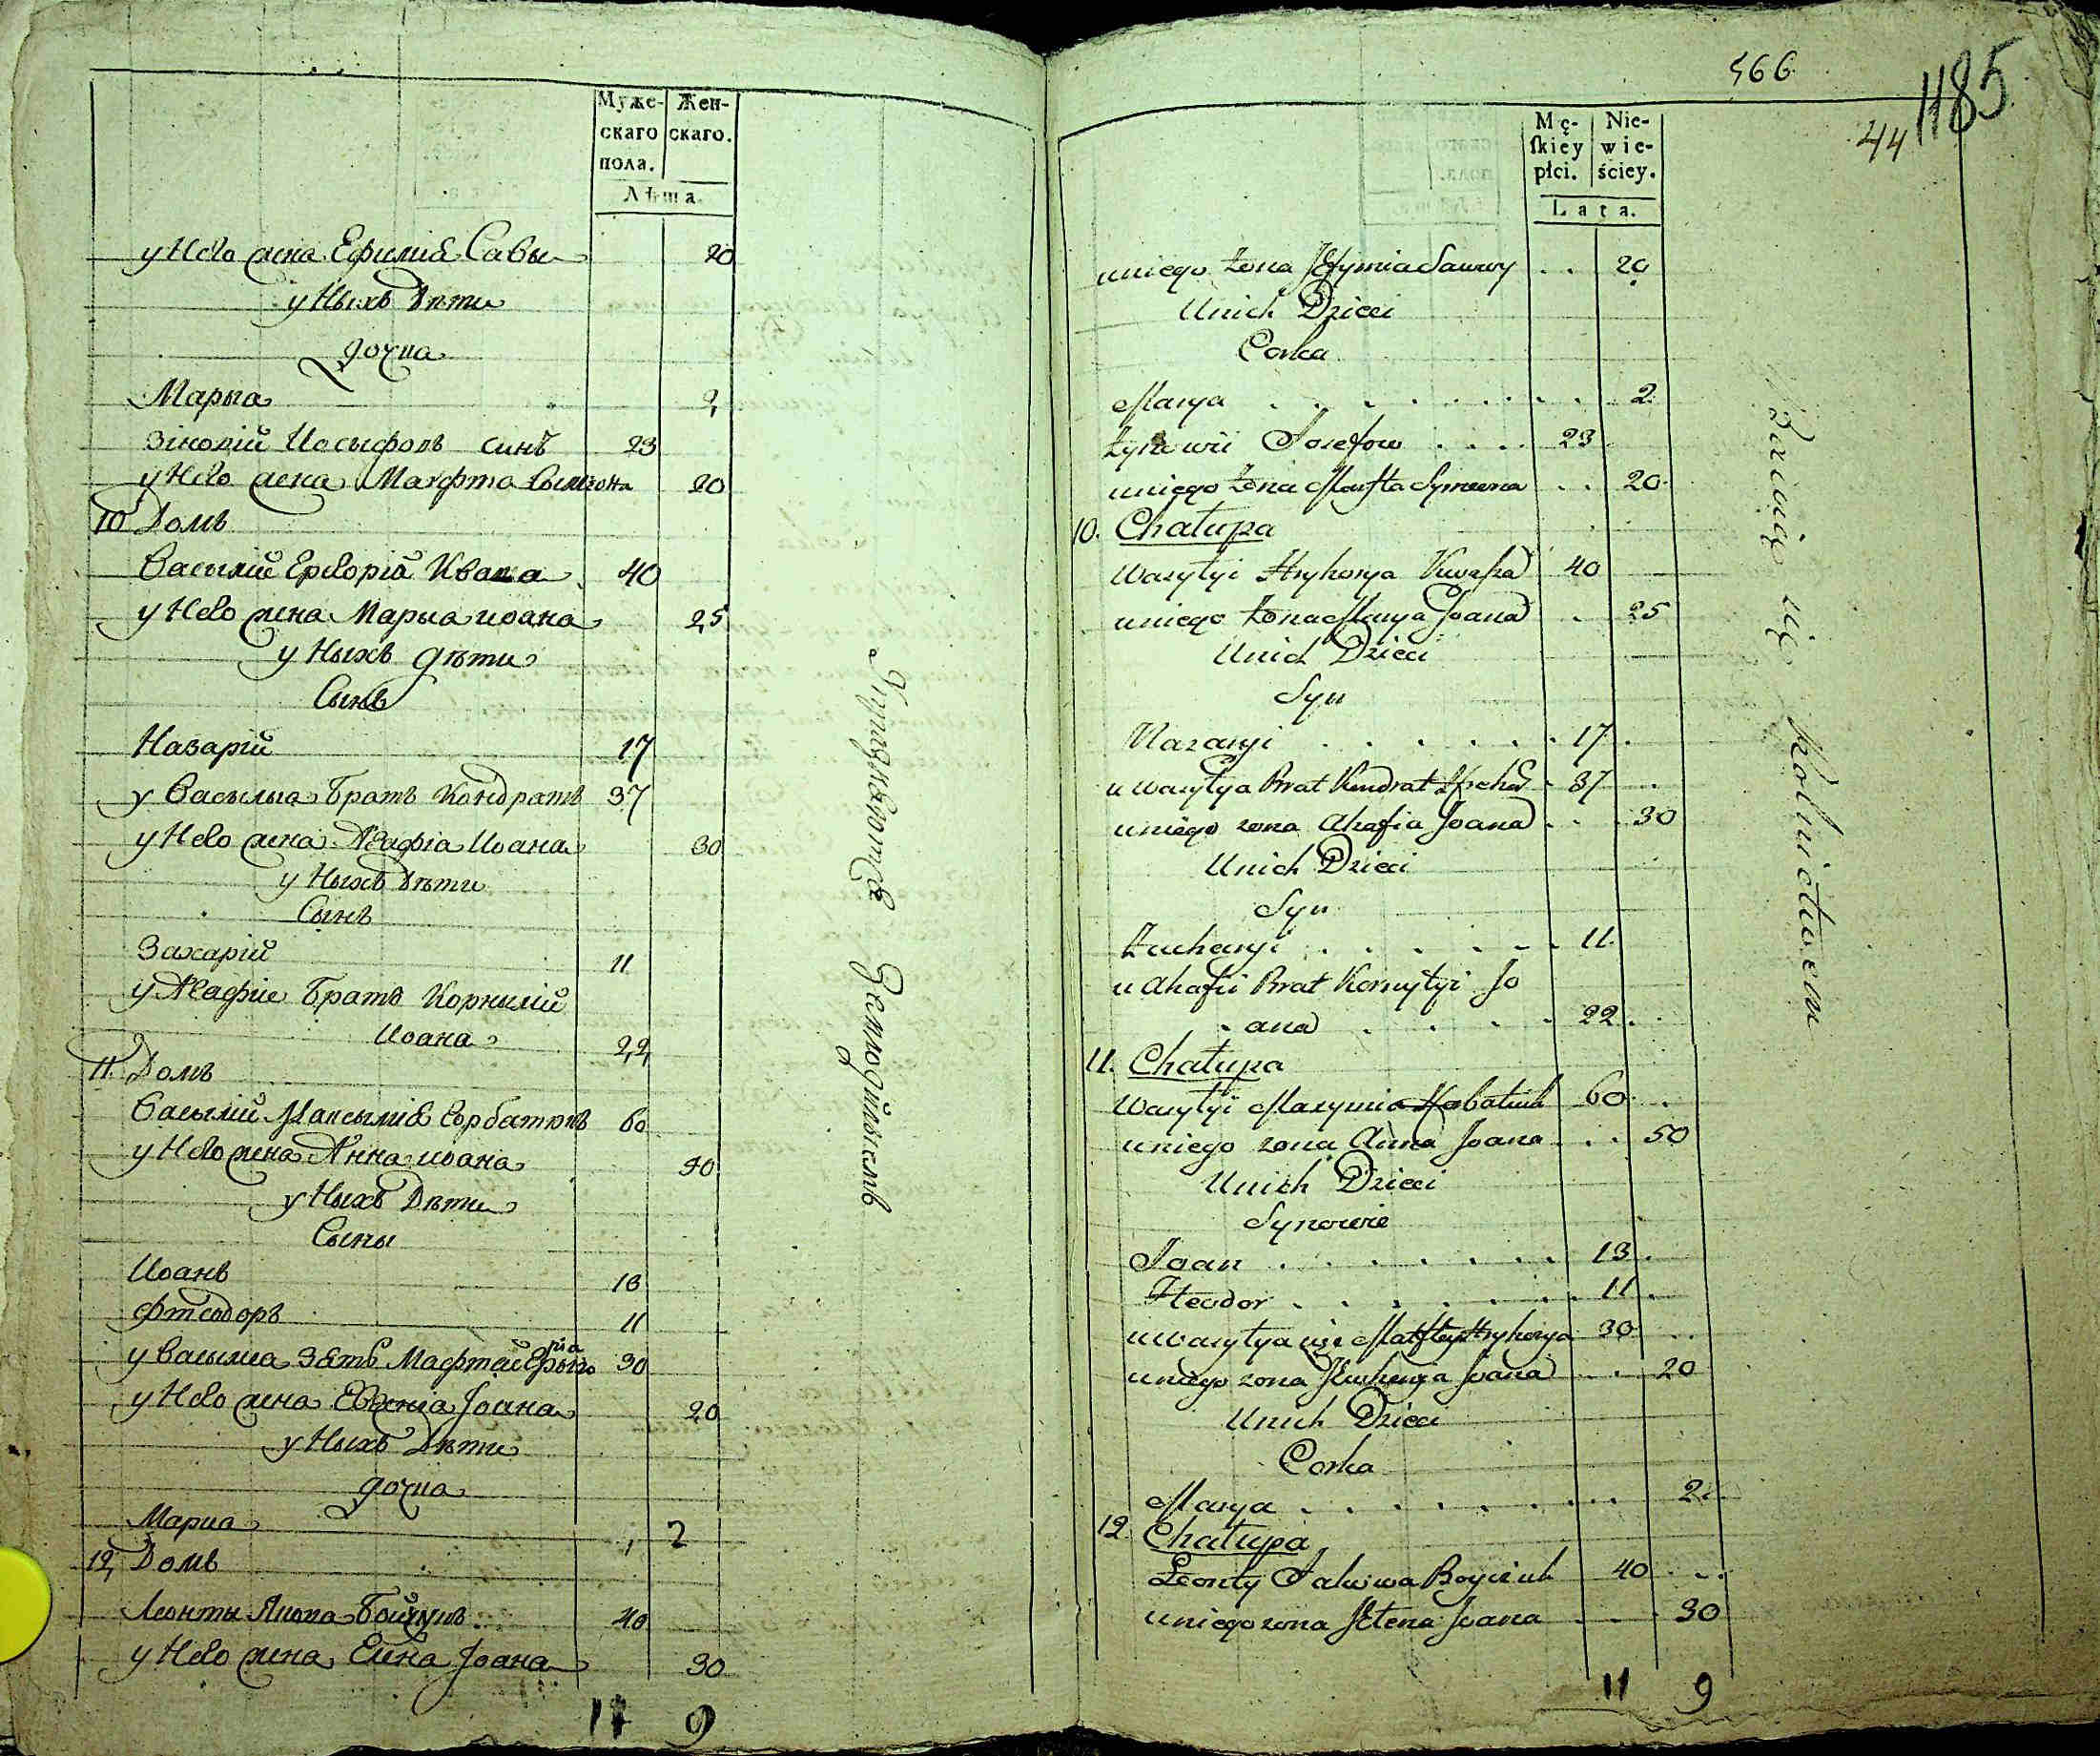 Муже- Жен-
скаго скаго.
пола.
Лѣта.
у Него жена Ефимія Савы 20
у Ныхъ Дѣти
дочка
Марыа 2
Зіновій Иосыфовъ синъ 23
у Него жена Марфта Сымеона 20
10 Домъ
Васылій Григорія Кваша 40
у Него жена Мариа иоана 25
у Ныхъ дѣти
Сынъ
Назарій 17
у Васылыа Братъ Кондратъ 37
у Него жена Агафіа Иоана 30
у Ныхъ Дѣти
Сынъ
Захарій 11
у Агафіе Братъ Корнилій
Иоана 22
11. Домъ
Васылій Максыміа Горбатюкъ 60
у Него жена Анна иоана 50
у Ныхъ Дѣти
Сыны
Иоанъ 13
Фтеодоръ 11
у Васылиа Зять Мафтей 30
у Него жена Евгеніа Јоана 20
у Ныхъ Дѣти
дочка
Мариа 2
12, Домъ
Леонты Якова Бойчукъ 40
у Него жена Елена Јоана 30
11 9
Упражняются Земледѣлыемъ
566.
1185
44
Mę- Nie-
skiey wie-
płci. ściey.
Lata.
uniego żona Jefymia Sawwy . . 20
Unich Dzieci
Corka
Marya . . . . . . . . . 2.
Zynowii Josefow . . . . 23
uniego żona Marfta Symeona . . 20.
10. Chałupa
Wasylyi Hryhorya Kwasza 40
uniego żona Marya Joana . 25
Unich Dzieci
Syn
Nazaryi . . . . . . 17.
u Wasylya Brat Kondrat . 37
uniego zona Ahafia Joana . . . 30
Unich Dzieci
Syn
Zacharyi . . . . . . 11.
u Ahafii Brat Kornylyi Jo
ana . . . . . 22.
11. Chałupa
Wasylyi Maxymia Horbatiuk 60 .
uniego zona Anna Joana . . . 50
Unich Dzieci
Synowie
Joan . . . . . . . 13.
Fteodor . . . . . . . 11 .
u Wasylya Maftey Hryhorya 30 . .
uniego zona Joana . . 20
Unich Dzieci
Corka
Marya . . . . . . . . . 2.
12 Chałupa
Leonty Jakowa Boyczuk 40 . . .
uniego zona Jelena Joana . . . 30
11 9
Bawią się Rolnictwem